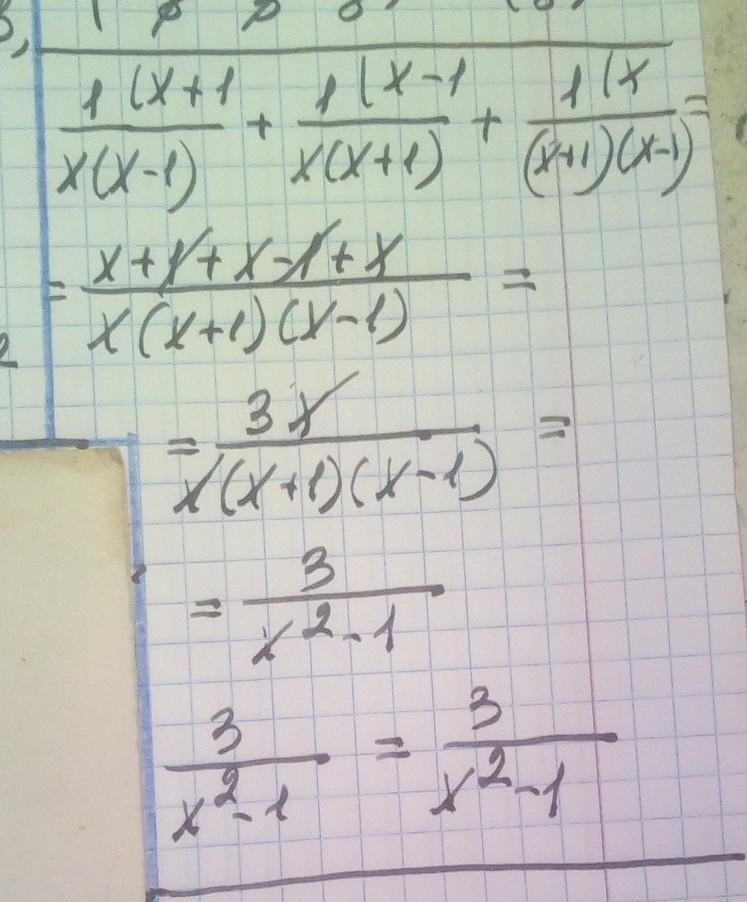 1 (x+1 / x(x-1) + 1 (x-1 / x(x+1) + 1 (x / (x+1)(x-1) =
= x+1+x-1+x / x(x+1)(x-1) =
= 3x / x(x+1)(x-1) =
= 3 / x²-1
3 / x²-1 = 3 / x²-1